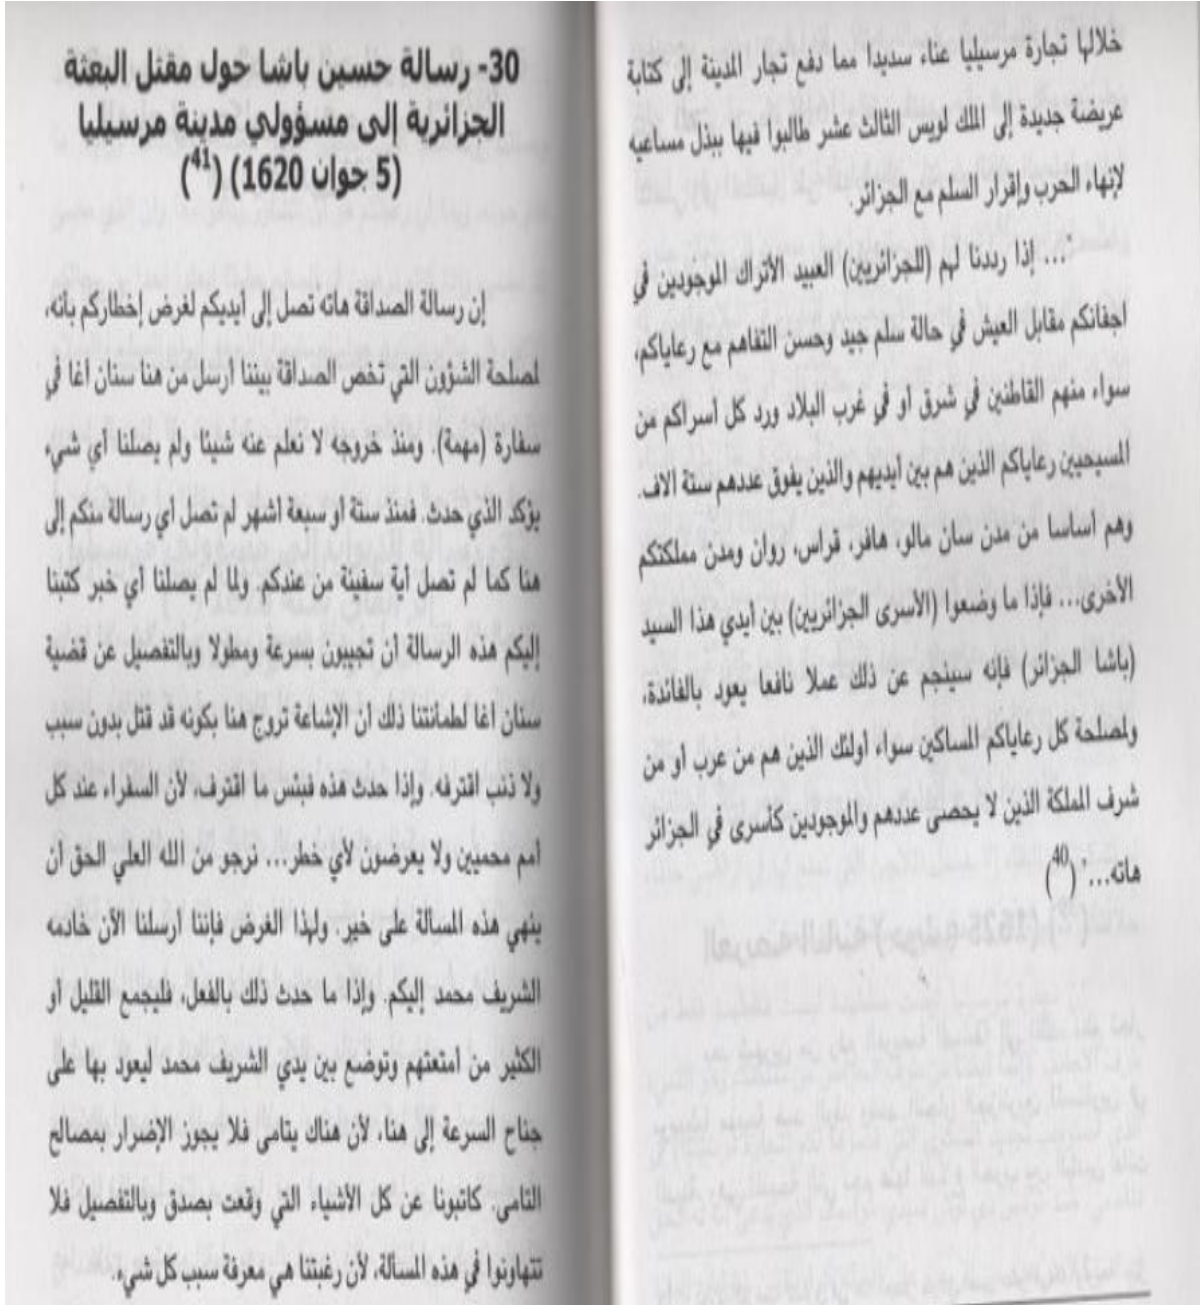 خلالها تجارة مرسيليا عناء سديدا مما دفع تجار المدينة إلى كتابة
عريضة جديدة إلى الملك لويس الثالث عشر طالبوا فيها ببذل مساعيه
لإنهاء الحرب وإقرار السلم مع الجزائر.
"... إذا رددنا لهم (للجزائريين) العبيد الأتراك الموجودين في
اجفانكم مقابل العيش في حالة سلم جيد وحسن التفاهم مع رعاياكم،
سواء منهم القاطنين في شرق أو في غرب البلاد ورد كل أسراكم من
المسيحيين رعاياكم الذين هم بين أيديهم والذين يفوق عددهم ستة آلاف.
وهم أساسا من مدن سان مالو، هافر، قراس، روان ومدن مملكتكم
الأخرى... فإذا ما وضعوا (الأسرى الجزائريين) بين أيدي هذا السيد
(باشا الجزائر) فإنه سينجم عن ذلك عملا نافعا يعود بالفائدة،
ولمصلحة كل رعاياكم المساكين سواء أولئك الذين هم من عرب أو من
شرف المملكة الذين لا يحصى عددهم والموجودين كأسرى في الجزائر
هاته..." (40)
30- رسالة حسين باشا حول مقتل البعثة
الجزائرية إلى مسؤولي مدينة مرسيليا
(5 جوان 1620) (41)
إن رسالة الصداقة هاته تصل إلى أيديكم لغرض إخطاركم بأنه،
لمصلحة الشؤون التي تخص الصداقة بيننا أرسل من هنا سنان أغا في
سفارة (مهمة). ومنذ خروجه لا نعلم عنه شيئا ولم يصلنا أي شيء
يؤكد الذي حدث. فمنذ ستة أو سبعة أشهر لم تصل أي رسالة منكم إلى
هنا كما لم تصل أية سفينة من عندكم. ولما لم يصلنا أي خبر كتبنا
إليكم هذه الرسالة أن تجيبون بسرعة ومطولا وبالتفصيل عن قضية
سنان أغا لطمانتنا ذلك أن الإشاعة تروج هنا بكونه قد قتل بدون سبب
ولا ذنب اقترفه. وإذا حدث هذه فبئس ما اقترف، لأن السفراء عند كل
أمم محميين ولا يعرضون لأي خطر... نرجو من الله العلي الحق أن
ينهي هذه المسألة على خير. ولهذا الغرض فإننا أرسلنا الآن خادمه
الشريف محمد إليكم. وإذا ما حدث ذلك بالفعل، فليجمع القليل أو
الكثير من أمتعتهم وتوضع بين يدي الشريف محمد ليعود بها على
جناح السرعة إلى هنا، لأن هناك يتامى فلا يجوز الإضرار بمصالح
الثامى. كاتبونا عن كل الأشياء التي وقعت بصدق وبالتفصيل فلا
تتهاونوا في هذه المسألة، لأن رغبتنا هي معرفة سبب كل شيء.